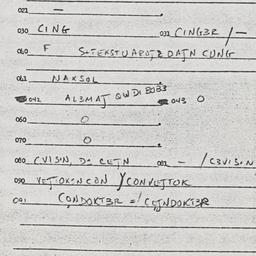 021 —
030 CING 031 CINGER / —
040 F S+TEKSTUAROTZ DATN CUNG
041 NAXSOL
042 AL3MAT QWDI 043 O
060 O
070 O
080 CVISN, D= CETN 082 — / C3VISN
090 VETTOKSNCON / CONVETTOK
091 CONDOKT3R =/ CETNDOKT3R